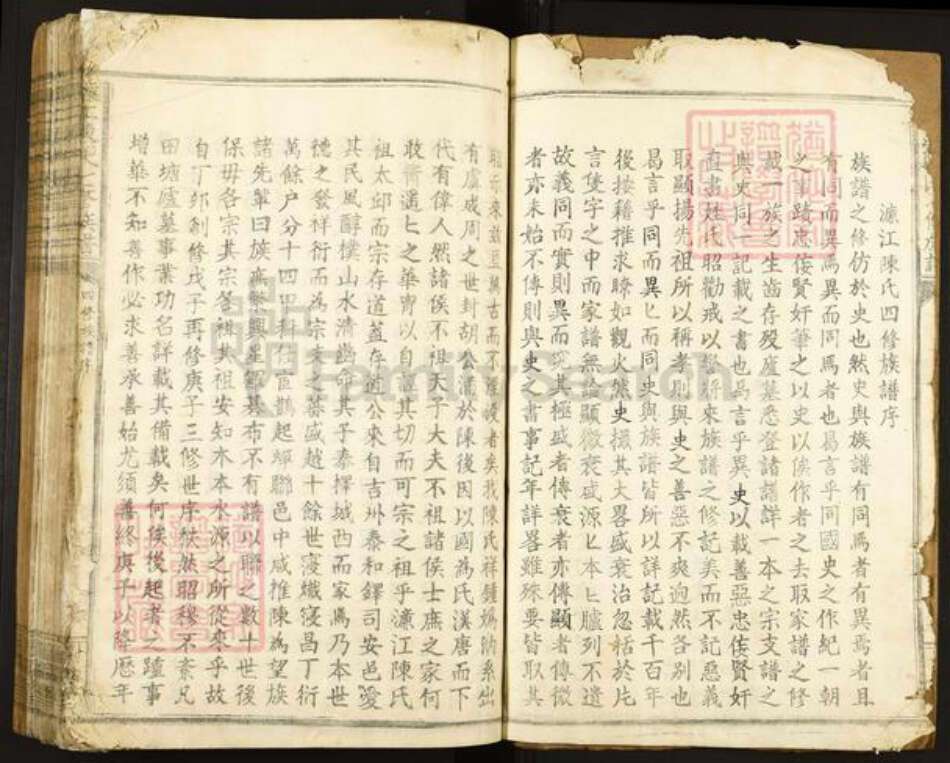 濂江陳氏四修族譜序
族譜之修仿於史也然史與族譜有同焉者有異焉者且
有同而異焉異而同焉者也曷言乎同國史之作紀一朝
之事蹟忠佞賢奸筆之以史以俟作者之去取家譜之修
載一族之生齒存歿廬墓悉登諸譜詳一本之宗支譜之
與史同一記載之書也曷言乎異史以載善惡忠佞賢奸
直書姓氏昭勸戒以來族譜之修記美而不記惡義
取顯揚先祖所以稱孝則與史之善惡不爽逈然各別也
曷言乎同而異匕而同史與族譜皆所以詳記載千百年
後按籍推求睞如觀火然史撮其大畧盛衰治忽括於片
言隻字之中而家譜無論顯微衰盛源匕本匕臚列不遺
故義同而實則異而究其極盛者傳衰者亦傳顯者傳微
者亦未始不傳則與史之書事記年詳畧雖殊要皆取其
昭示來茲亙萬古而不者矣我陳氏祥鍾媯汭系出
有虞成周之世封胡公滿於陳後因以國為氏漢唐而下
代有偉人然諸侯不祖天子大夫不祖諸侯士庶之家何
敢遙匕之華胄以自誣其切而可宗之祖乎濂江陳氏
祖太邱而宗存道蓋存道公來自吉州泰和鐸司安邑愛
其民風醇樸山水清命其子泰擇城西而家焉乃本世
德之發祥衍而為宗支之蕃盛越十餘世寖熾寖昌丁衍
萬餘户分十四甲科仕宦鵲起蟬聯邑中咸推陳為望族
諸先輩曰族寖繁興星羅碁布不有譜以聯之數十世後
保毋各宗其宗各祖其祖安知木本水源之所從來乎故
自丁卯創修戊子再修庚子三修世序秩然昭穆不紊凡
田塘廬墓事業功名詳載其備載矣何俟後起者之踵事
增華不知善作必求善承善始尤須善終庚子以降歷年
FamilySearch